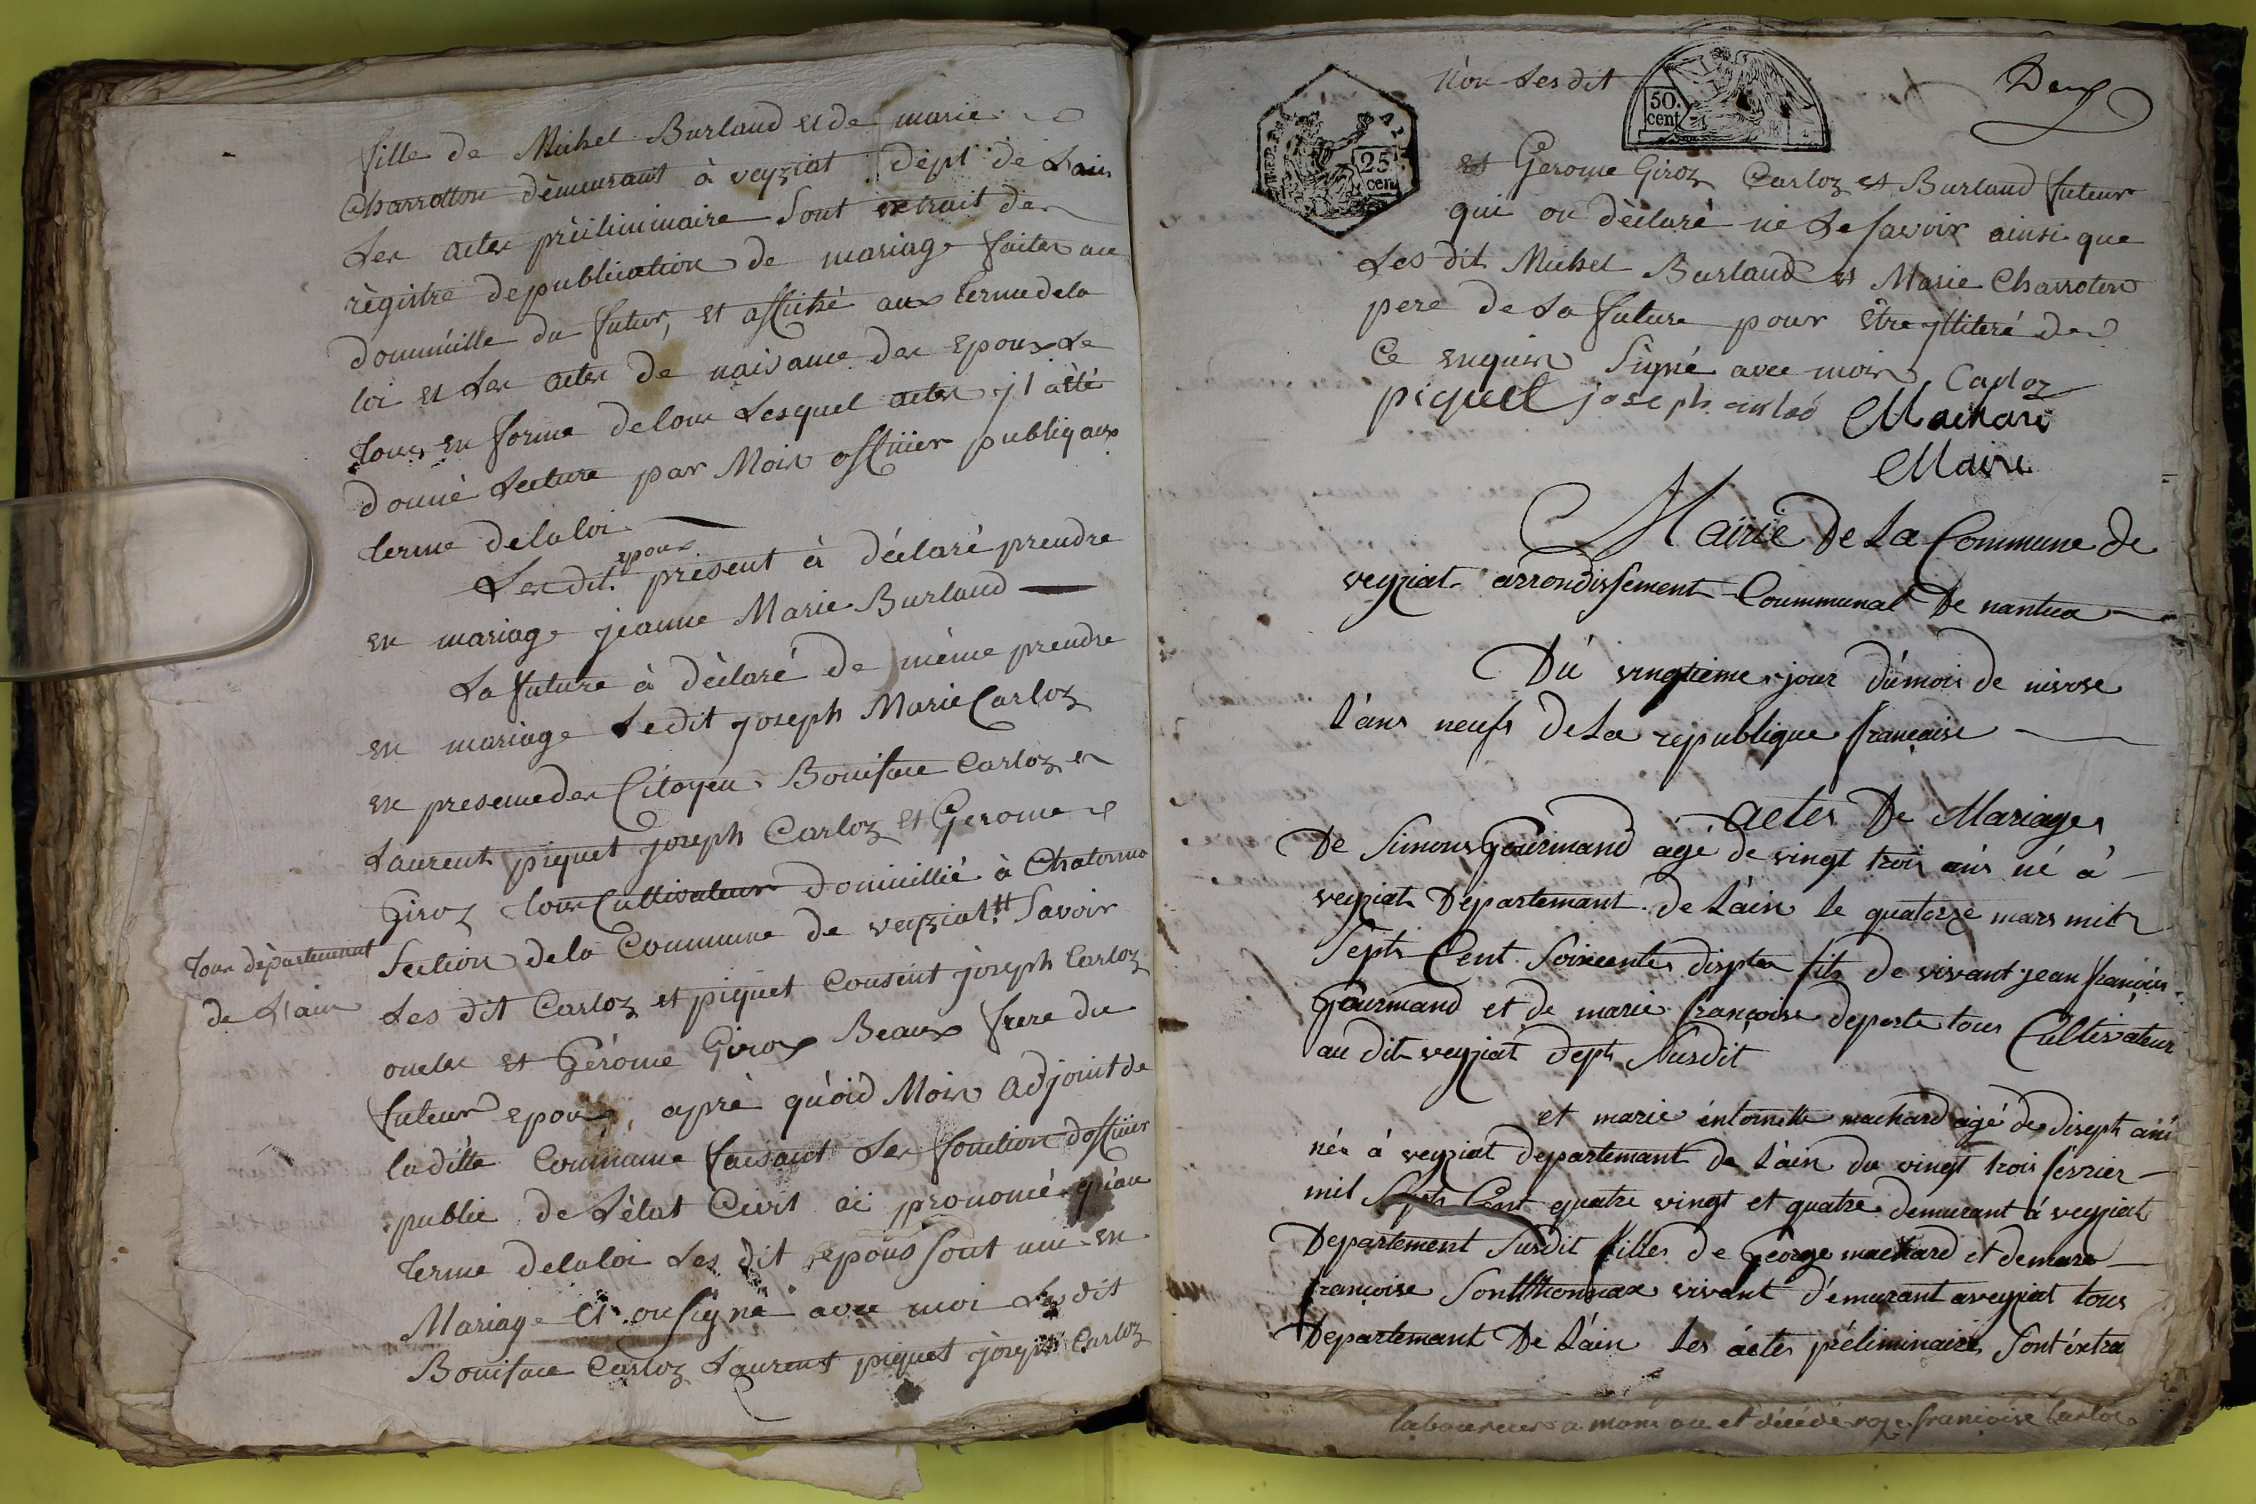 fille de Michel Burlaud et de marie
Charrotton dèmeurant à veyziat dépt de L'ain
Les actes prèiliminaire Sont extrait des
règistre de publication de mariage faites au
dommicille du futur, et affiché aux terme de la
loi et Les actes de naisance des Epoux Le
tous en forme de lour Lesquel actes jl a èté
donné Lecture par Mois officier publiq aux
terme de la loi
Les dit epoux prèsent à déclaré prendre
en mariage jeanne Marie Burlaud
La future à dèclaré de même prendre
en mariage Ledit joseph Marie Carloz
en presence des Citoyen Boniface Carloz et
Laurent piquet joseph Carloz et Gerome
Giroz tous Cultivateur domicillié à Chatonno
Section de la Commune de veyziat Savoir
tous dèpartement
de L'ain
Les dit Carloz et piquet Cousint joseph Carloz
oncles et Gérome Giroz Beaux frere du
futeur epoux, aprè quoid Mois adjoint de
la ditte Commune faisant Les fonction d'officier
public de L'ètat Civil ai prononcé qu'au
terme de la loi Les dit epous sont uni en
Mariage et on signé avec moi Lesdit
Boniface Carloz Laurent piquet joseph Carloz
Non Lesdit
50. cent
25 cen
Deux
et Gerome Giroz Carloz et Burlaud future
qui on dèclaré ne Le savoir ainsi que
Les dit Michel Burlaud et Marie Charroton
pere de La future pour être jlliteré de
Ce enquis Signé avec mois Carloz
piquet joseph carloz Machard
Maire
Mairie De La Commune de
veyziat arrondissement Coummunal De nantua
Du vingtieme jour du mois de nivose
L'ans neufs De La republique française
actes De Mariages
De Simons Gourmand agé de vingt trois ans né à
veyziat Departemant de L'ain le quatorze mars mil
Sept Cent Soixcente disptes fils de vivant jean françois
Gourmand et de marie françoise deporte tous Cultivateur
au dit veyziat dept Susdit
et marie entoinette machard agé de disepts ans
née à veyziat departemant de L'ain du vingt trois fevrier
mil Septs Cent quatre vingt et quatre demeurant à veyziat
Departement Susdit filles de George machard et de marie
françoise Sonthonnax vivant démeurant a veyziat tous
Departemant De L'ain Les actes préliminaires Sont éxtra
laboureur a mom ou et décédé roze françoise Carloz